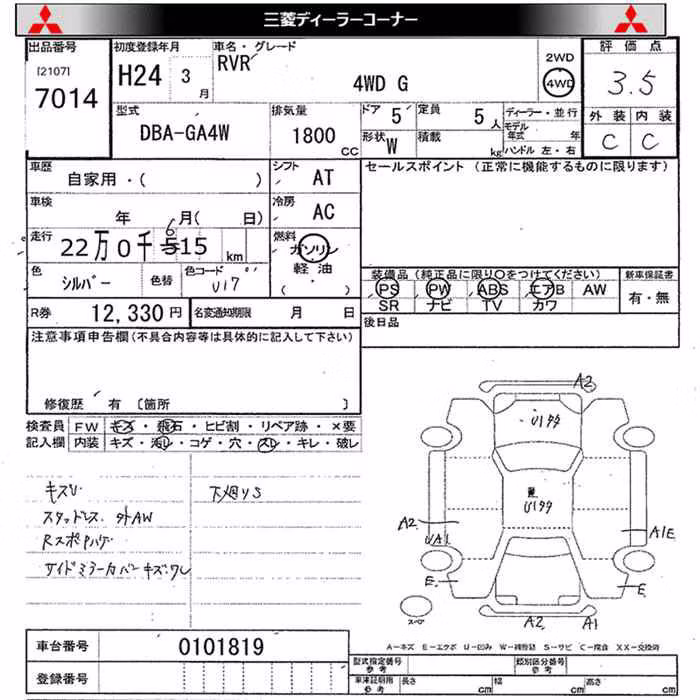 三菱ディーラーコーナー
出品番号 初度登録年月 車名・グレード 2WD 評価点
[2107] 7014 H24 3月 RVR 4WD G 4WD 3.5
型式 排気量 ドア 5 定員 5人 ディーラー・並行 外装 内装
DBA-GA4W 1800cc 形状 W 積載 kg モデル年式 年 C C
ハンドル 左・右
車歴 シフト セールスポイント (正常に機能するものに限ります)
自家用・( ) AT
車検 冷房
年 6月( 日) AC
走行 燃料
22万0千515km ガソリン
軽油
( ・ )
色 色替 色コード 装備品 (純正品に限り○をつけてください) 新車保証書
シルバー U17 PS PW ABS エアB AW 有・無
SR ナビ TV カワ
R券 12,330円 名変通知期限 月 日 後日品
注意事項申告欄(不具合内容等は具体的に記入して下さい)
修復歴 有 〔箇所 〕
検査員 FW キズ・飛石・ヒビ割・リペア跡・×要
記入欄 内装 キズ・汚レ・コゲ・穴・スレ・キレ・破レ
キズU 下廻りS
スタッドレス 外AW
サイドミラーカバーキズワレ
A2
U1サ
U1サ
A2 A1E
UA1
E E
スペア A2 A1
A=キズ E=エクボ U=凹み W=補修跡 S=サビ C=腐食 XX=交換済
車台番号 0101819
登録番号
型式指定番号 参考 類別区分番号 参考
車庫証明用 参考 長さ cm 幅 cm 高さ cm